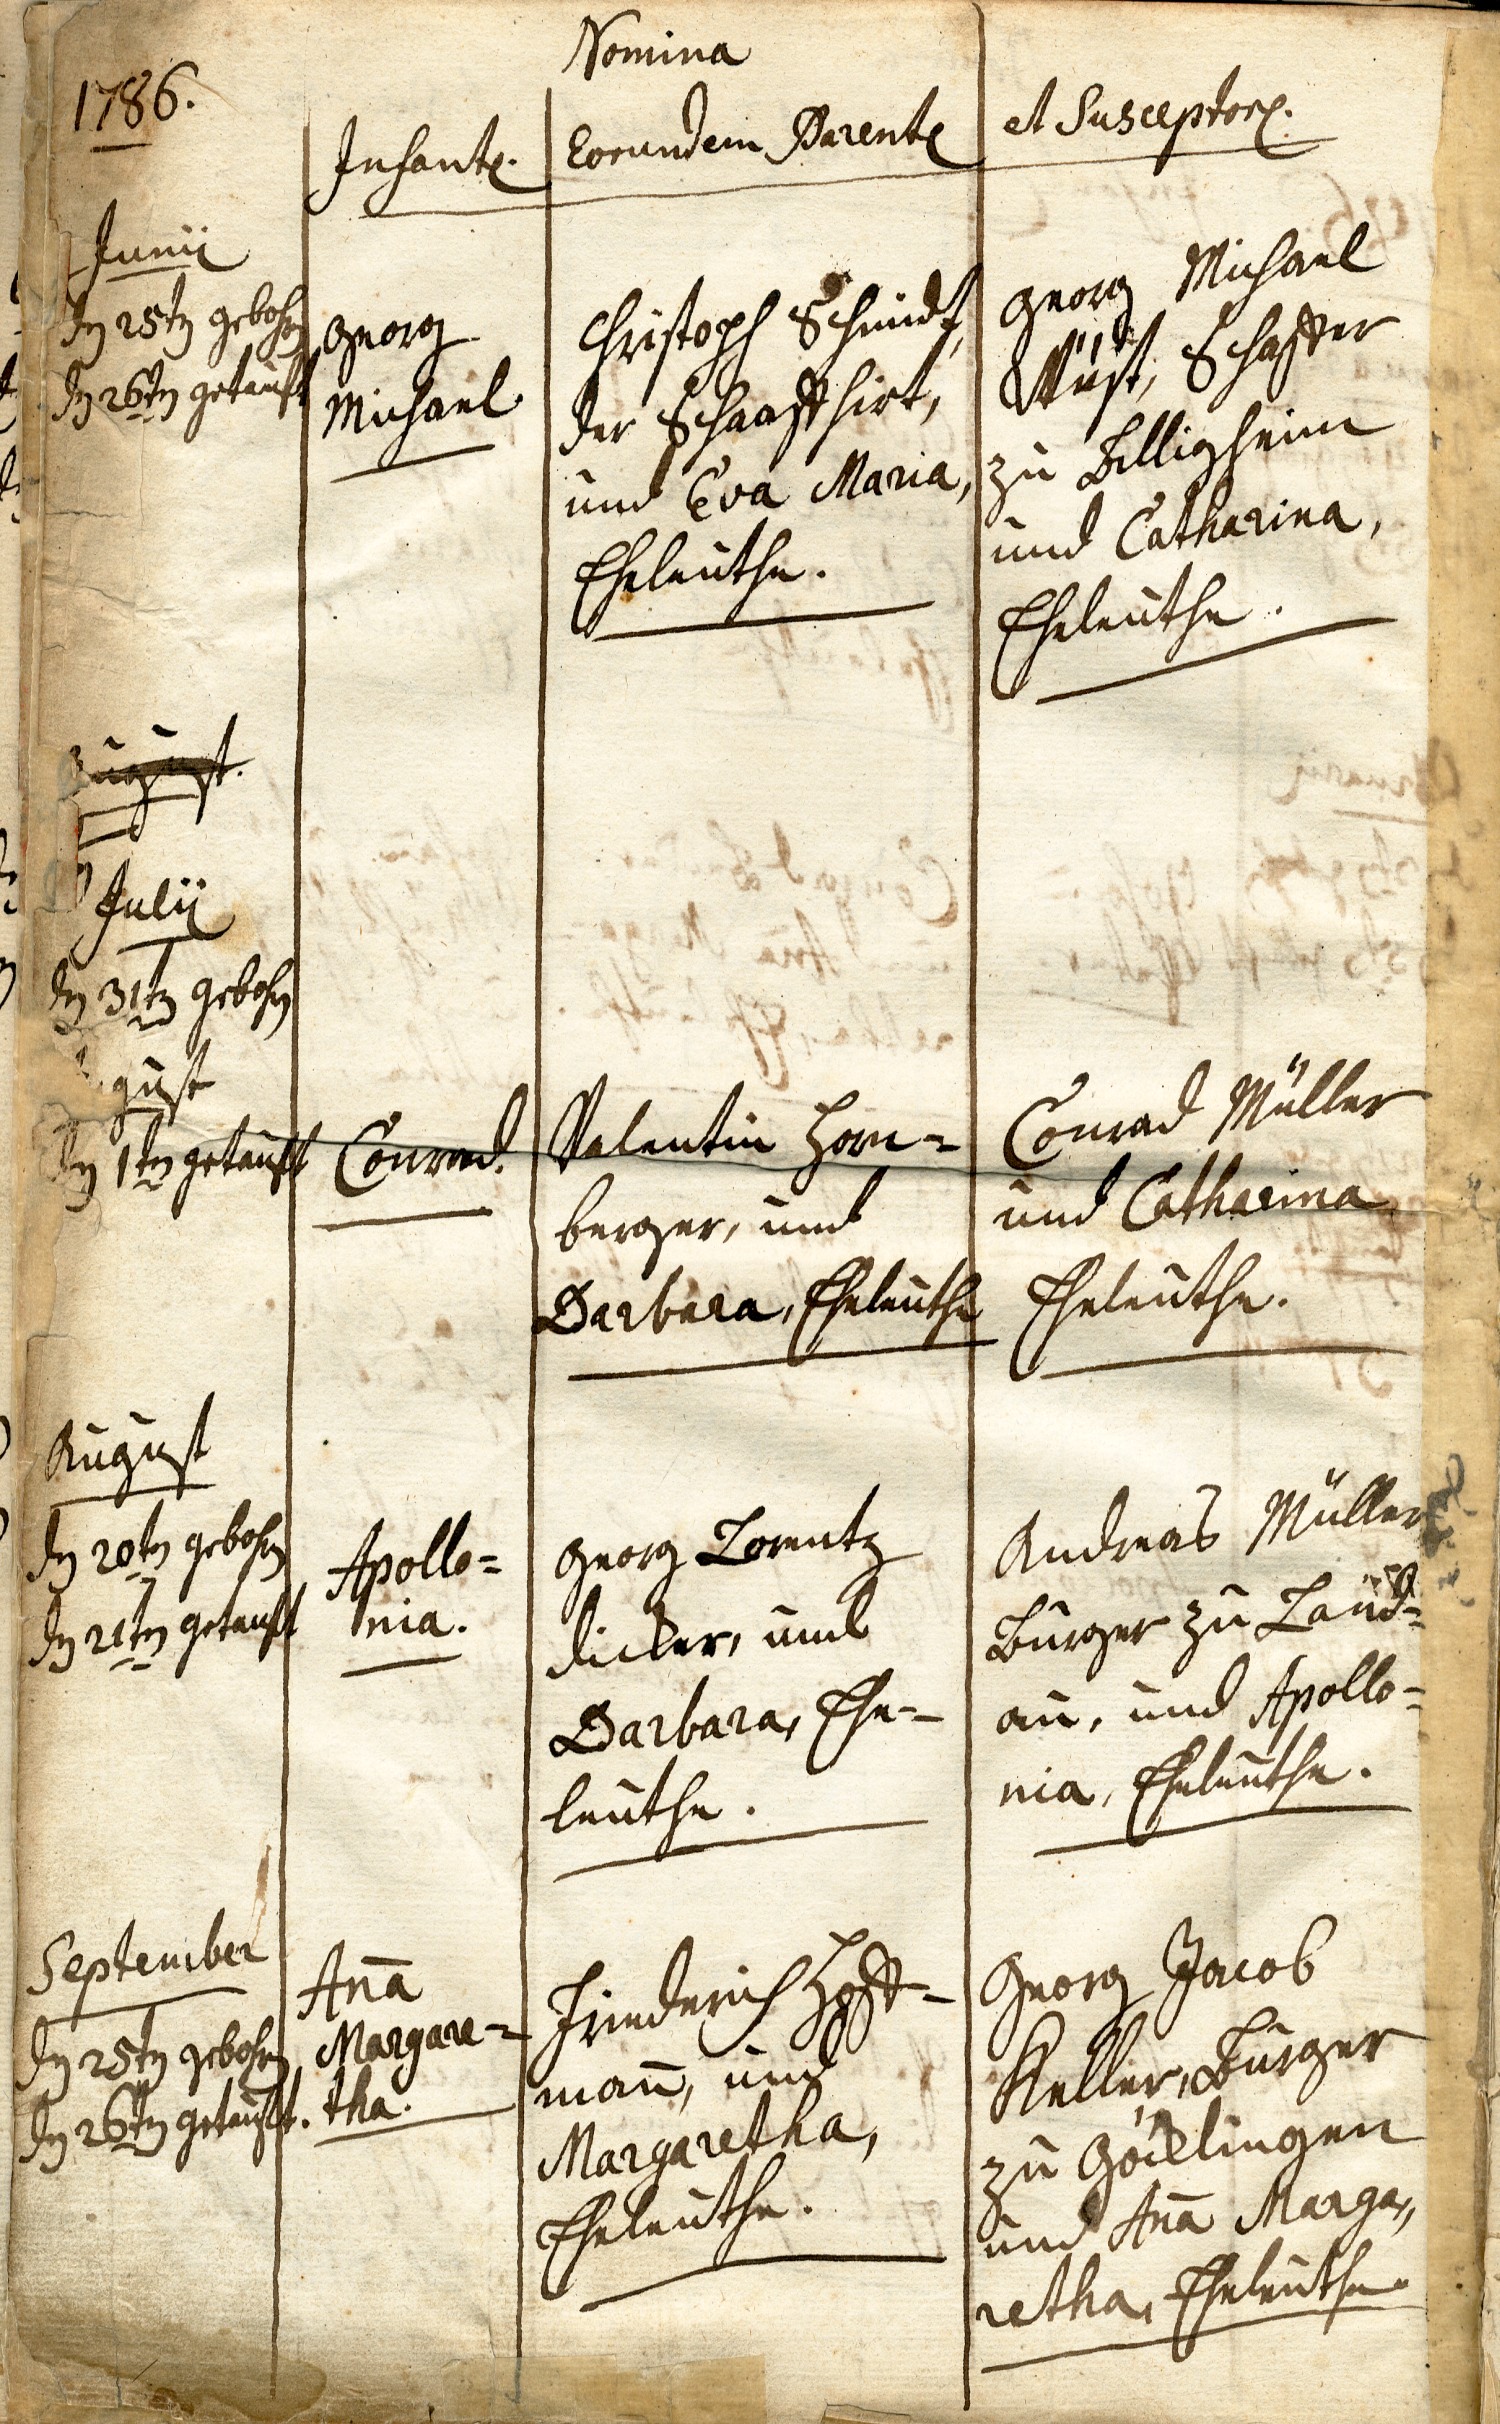 1786.
Nomina
Infant.
Eorundem Parent.
et Susceptor.
Junii
dn 25tn gebohrn
dn 26tn getauft
Georg
Michael
Christoph Schmidt,
der Schaafhirt,
und Eva Maria,
Eheleuthe.
Georg Michael
Wüst, Schaffer
zu Billigheim
und Catharina,
Eheleuthe.
August.
Julii
dn 31tn gebohrn
gust
dn 1tn getauft
Conrad.
Valentin Horn-
berger, und
Barbara, Eheleuthe
Conrad Müller
und Catharina
Eheleuthe.
August
dn 20tn gebohrn
dn 21tn getauft
Apollo=
nia.
Georg Lorentz
dicker, und
Barbara, Ehe-
leuthe.
Andreas Müller
Burger zu Land-
au, und Apollo-
nia, Eheleuthe.
September
dn 25tn gebohrn
dn 26tn getauft.
Ana̅
Margare=
tha.
Friederich Hoff-
man̅, und
Margaretha,
Eheleuthe.
Georg Jacob
Keller, Burger
zu Göcklingen
und Ana̅ Marga,,
retha, Eheleuthe.